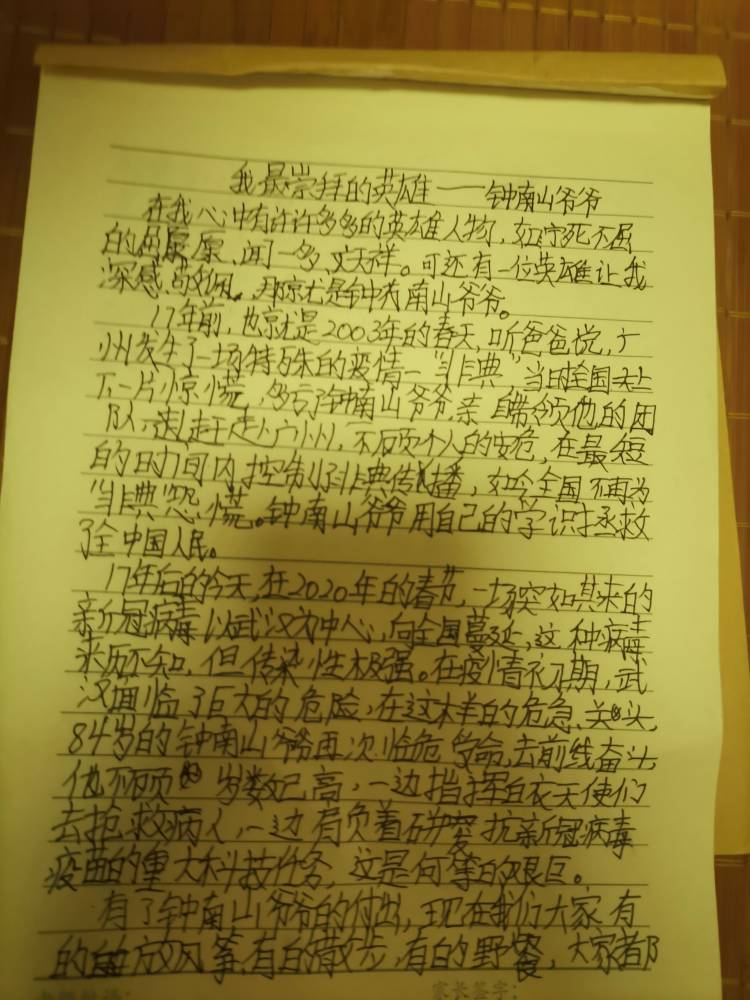 我最崇拜的英雄——钟南山爷爷
在我心中有许许多多的英雄人物，如宁死不屈
的屈原、闻一多、文天祥。可还有一位英雄让我
深感敬佩，那就是钟南山爷爷。
17年前，也就是2003年的春天，听爸爸说，广
州发生了一场特殊的疫情—"非典"，当时全国上
下一片惊慌，多亏了钟南山爷爷亲自带领他的团
队，赶赶广州，不顾个人的安危，在最短
的时间内控制了非典传播，如今全国不再为
"非典"恐慌。钟南山爷爷用自己的学识拯救
了全中国人民。
17年后的今天，在2020年的春节，一场突如其来的
新冠病毒以武汉为中心，向全国蔓延，这种病毒
来历不知，但传染性极强。在疫情初期，武
汉面临了巨大的危险，在这样的危急关头，
84岁的钟南山爷爷再次临危受命，去前线奋斗，
他不顾岁数已高，一边指挥白衣天使们
去抢救病人，一边肩负着研究抗新冠病毒
疫苗的重大科技任务，这是何等的艰巨。
有了钟南山爷爷的付出，现在我们大家有
的放风筝，有的散步，有的野餐，大家都
家长签字：